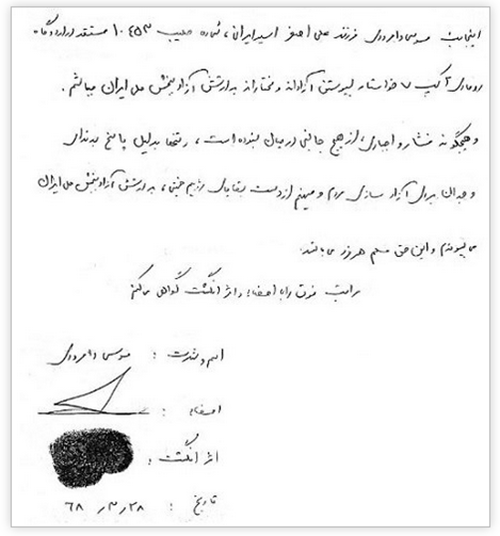 اینجانب موسی دامرودی فرزند علی اصغر اسیر ایرانی، شماره صلیب ۱۰۴۵۳ مستقر در اردوگاه
رومادی کمپ ۷ خواستار پیوستن آزادانه و مختارانه به ارتش آزادیبخش ملی ایران میباشم.
و هیچگونه فشار و اجباری، از هیچ جانبی در میان نبوده است، و تنها بدلیل پاسخ به ندای
وجدان برای آزاد سازی مردم و میهنم از دست بقایای رژیم خمینی، به ارتش آزادیبخش ملی ایران
می‌پیوندم و این حق مسلم هر فرد می باشد.
مراتب فوق را با امضاء و اثر انگشت گواهی میکنم
اسم و شهرت : موسی دامرودی
امضاء :
اثر انگشت :
تاریخ : ۶۸/۳/۲۸